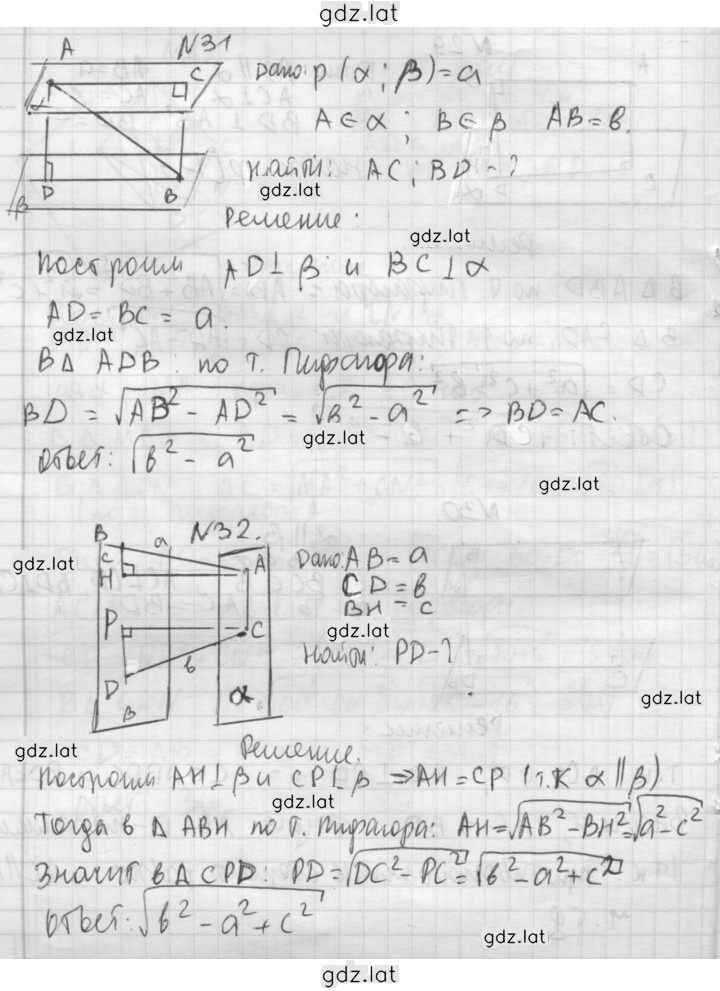 gdz.lat
N31
A
C
α
D
B
β
Дано: ρ (α ; β) = a
A ∈ α ; B ∈ β AB = в.
Найти: AC ; BD - ?
gdz.lat
Решение:
gdz.lat
Построим AD ⊥ β и BC ⊥ α
AD = BC = a.
gdz.lat
В Δ ADB : по т. Пифагора:
BD = √AB² - AD² = √в² - a² => BD = AC.
gdz.lat
Ответ: √в² - a²
gdz.lat
N32.
B
a
c
H
A
P
C
в
D
β
α
gdz.lat
Дано: AB = a
CD = в
BH = c
gdz.lat
Найти: PD - ?
gdz.lat
gdz.lat
Решение.
Построим AH ⊥ β и CP ⊥ β => AH = CP (т.к α || β)
gdz.lat
Тогда в Δ ABH по т. Пифагора: AH = √AB² - BH² = √a² - c²
Значит в Δ CPD: PD = √DC² - PC² = √в² - a² + c²
Ответ: √в² - a² + c²
gdz.lat
gdz.lat